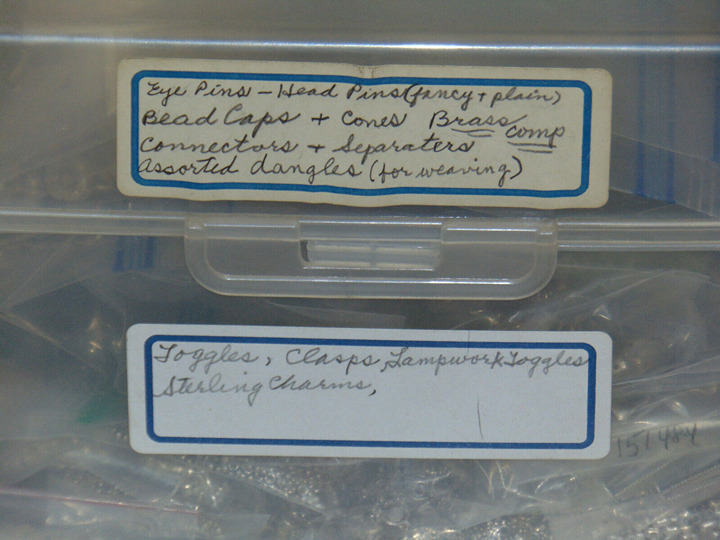 Eye Pins - Head Pins (fancy + plain)
Bead Caps + Cones Brass comp
Connectors + Separaters
Assorted dangles (for weaving)
Toggles, Clasps, Lampwork Toggles
Sterling Charms,